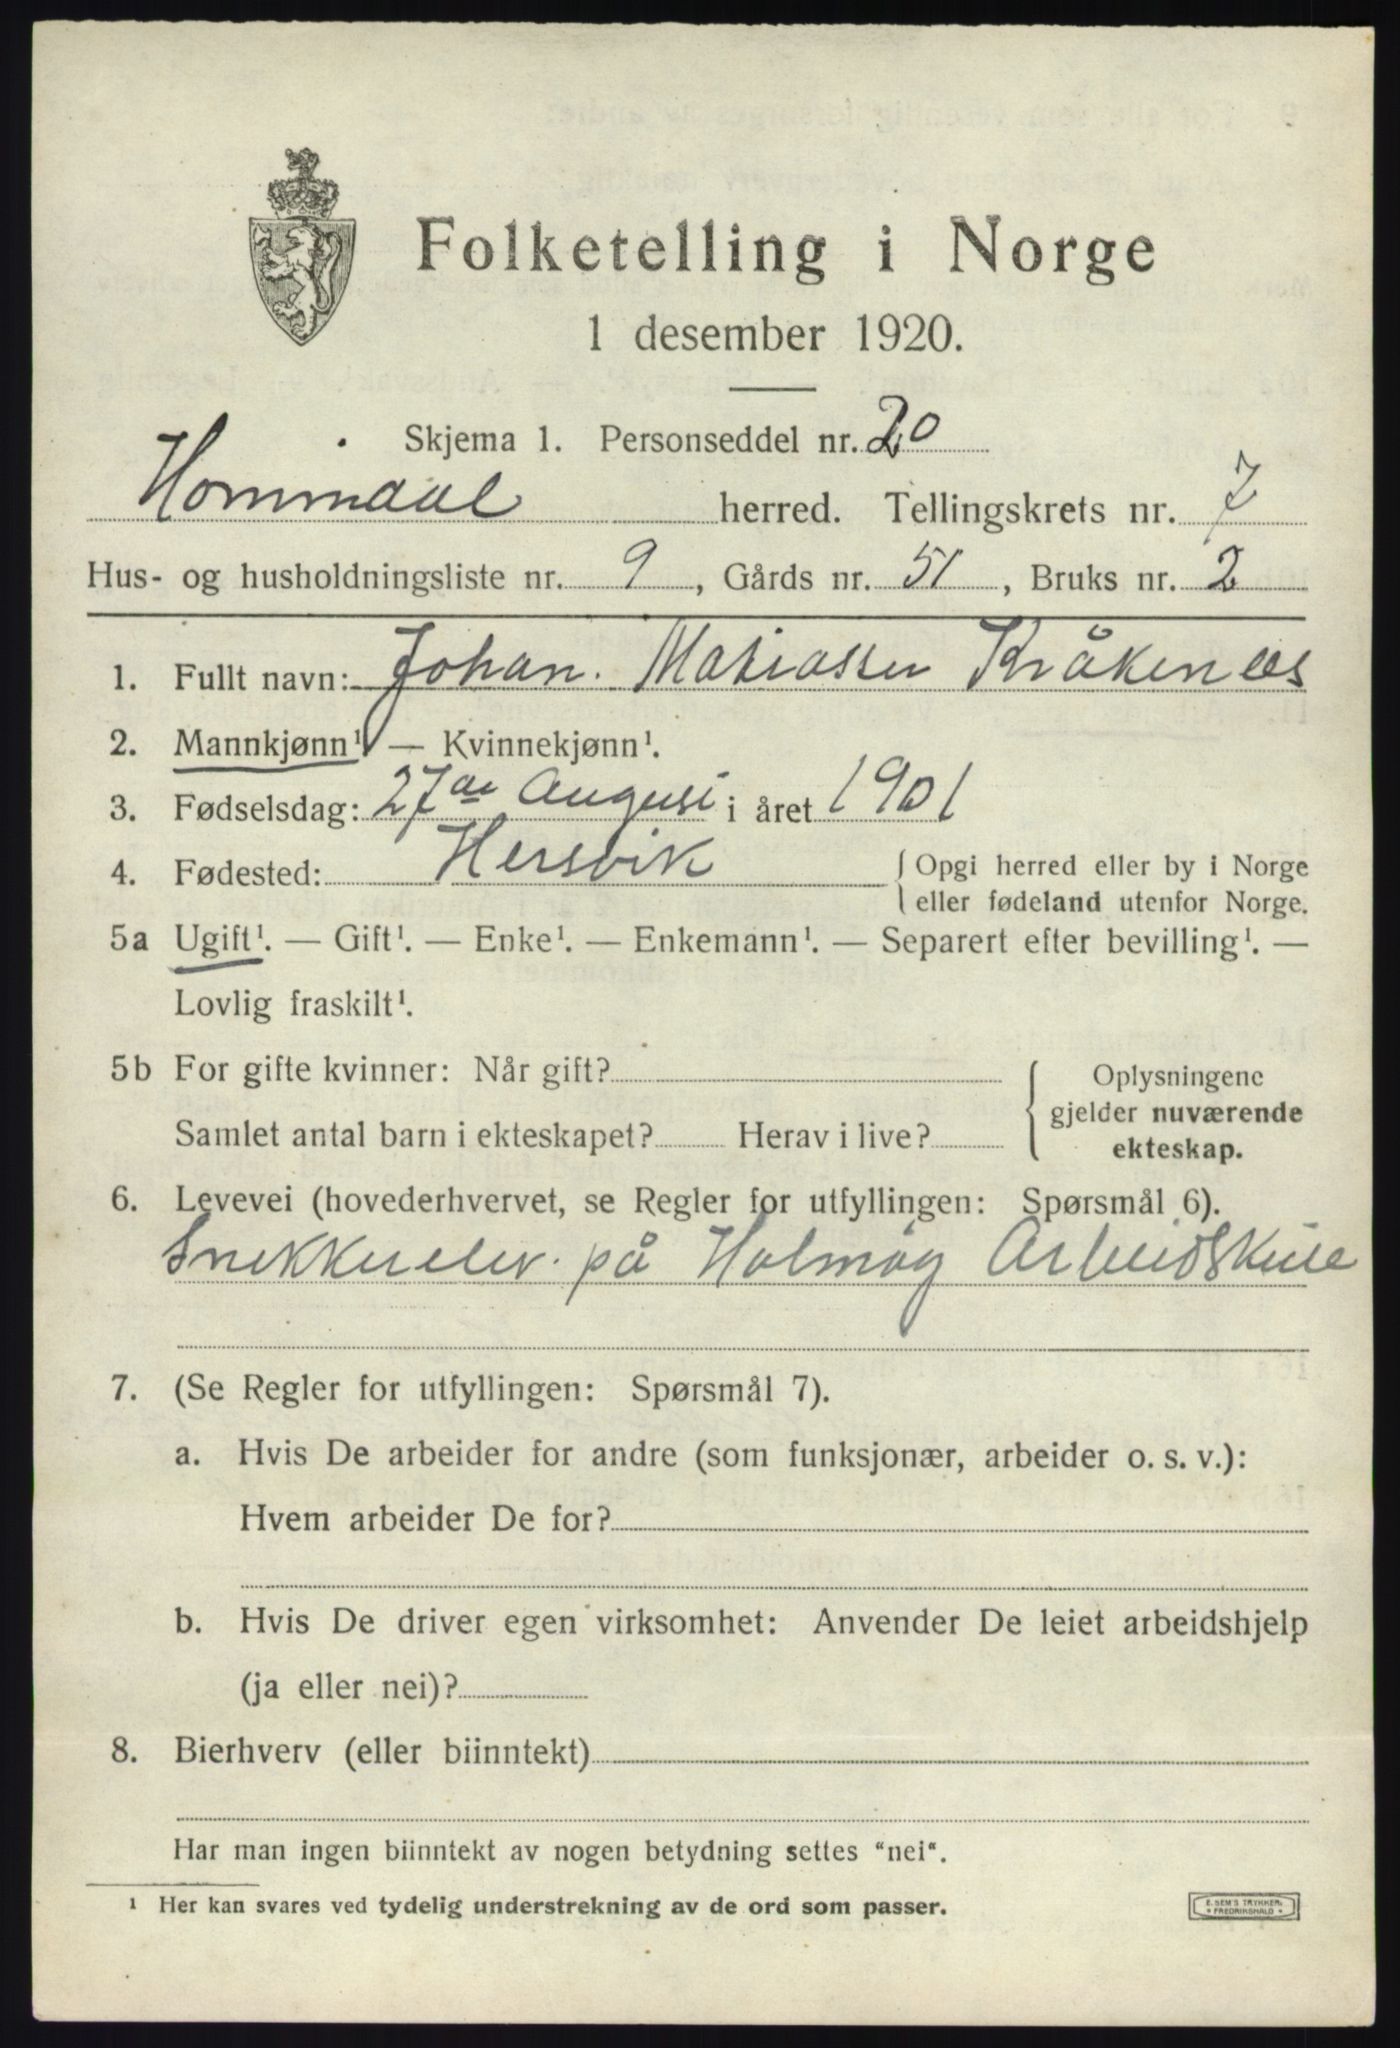 Folketelling i Norge
1 desember 1920.
Skjema 1. Personseddel nr. 20
Hornindal herred. Tellingskrets nr. 7
Hus- og husholdningsliste nr. 9, Gårds nr. 51, Bruks nr. 2
1. Fullt navn: Johan. Matiassen Kråkenes
2. Mannkjønn¹ — Kvinnekjønn¹.
3. Fødselsdag: 27de August i året 1901
4. Fødested: Hersvik { Opgi herred eller by i Norge
eller fødeland utenfor Norge.
5a Ugift¹. — Gift¹. — Enke¹. — Enkemann¹. — Separert efter bevilling¹. —
Lovlig fraskilt¹.
5b For gifte kvinner: Når gift? { Oplysningene
gjelder nuværende
Samlet antal barn i ekteskapet? Herav i live?
ekteskap.
6. Levevei (hovederhvervet, se Regler for utfyllingen: Spørsmål 6).
Snekkerelev. på Holmøy Arbeidskule
7. (Se Regler for utfyllingen: Spørsmål 7).
a. Hvis De arbeider for andre (som funksjonær, arbeider o. s. v.):
Hvem arbeider De for?
b. Hvis De driver egen virksomhet: Anvender De leiet arbeidshjelp
(ja eller nei)?
8. Bierhverv (eller biinntekt)
Har man ingen biinntekt av nogen betydning settes "nei".
¹ Her kan svares ved tydelig understrekning av de ord som passer.
E. SEM'S TRYKKERI
* FREDRIKSHALD *